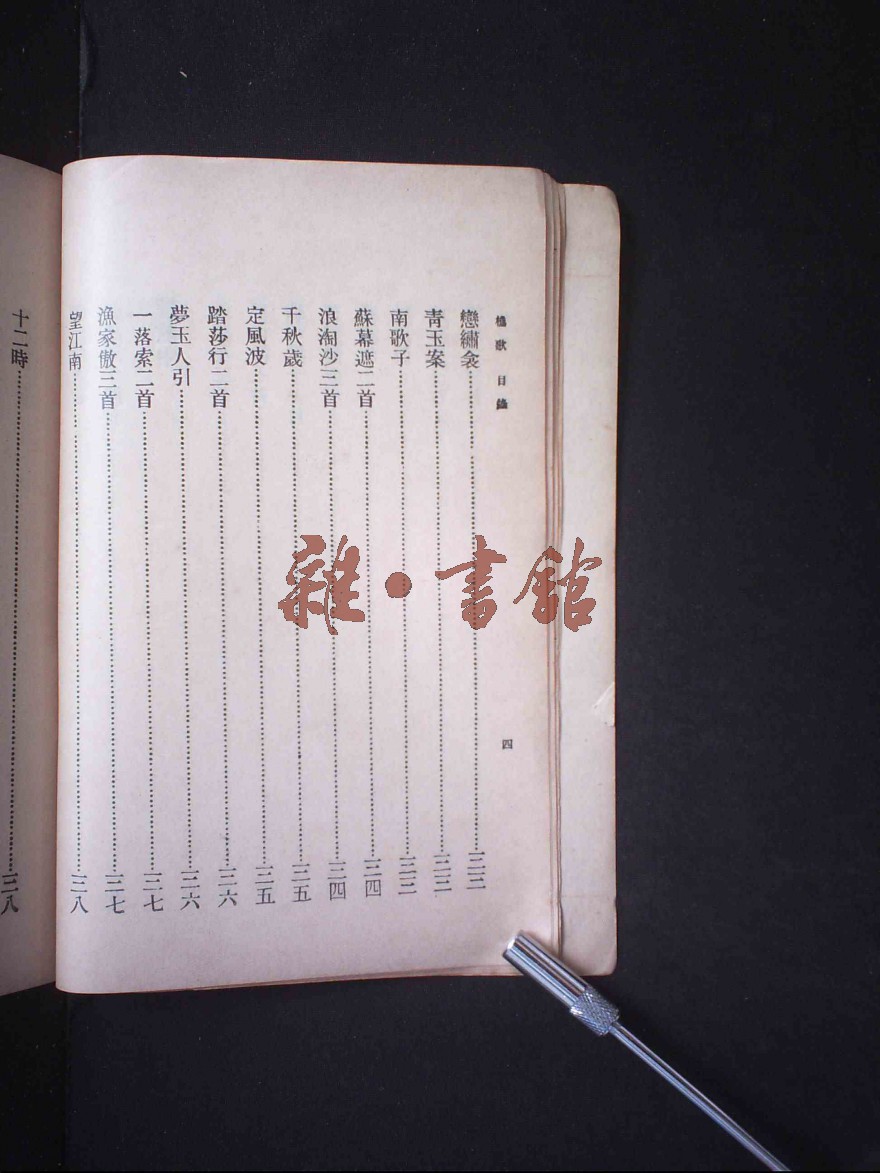 樵歌 目錄
戀繡衾…………三三
青玉案…………三三
南歌子…………三三
蘇幕遮二首…………三四
浪淘沙三首…………三四
千秋歲…………三五
定風波…………三五
踏莎行二首…………三六
夢玉人引…………三六
一落索二首…………三七
漁家傲三首…………三七
望江南…………三八
四
十二時…………三八
雜·書館